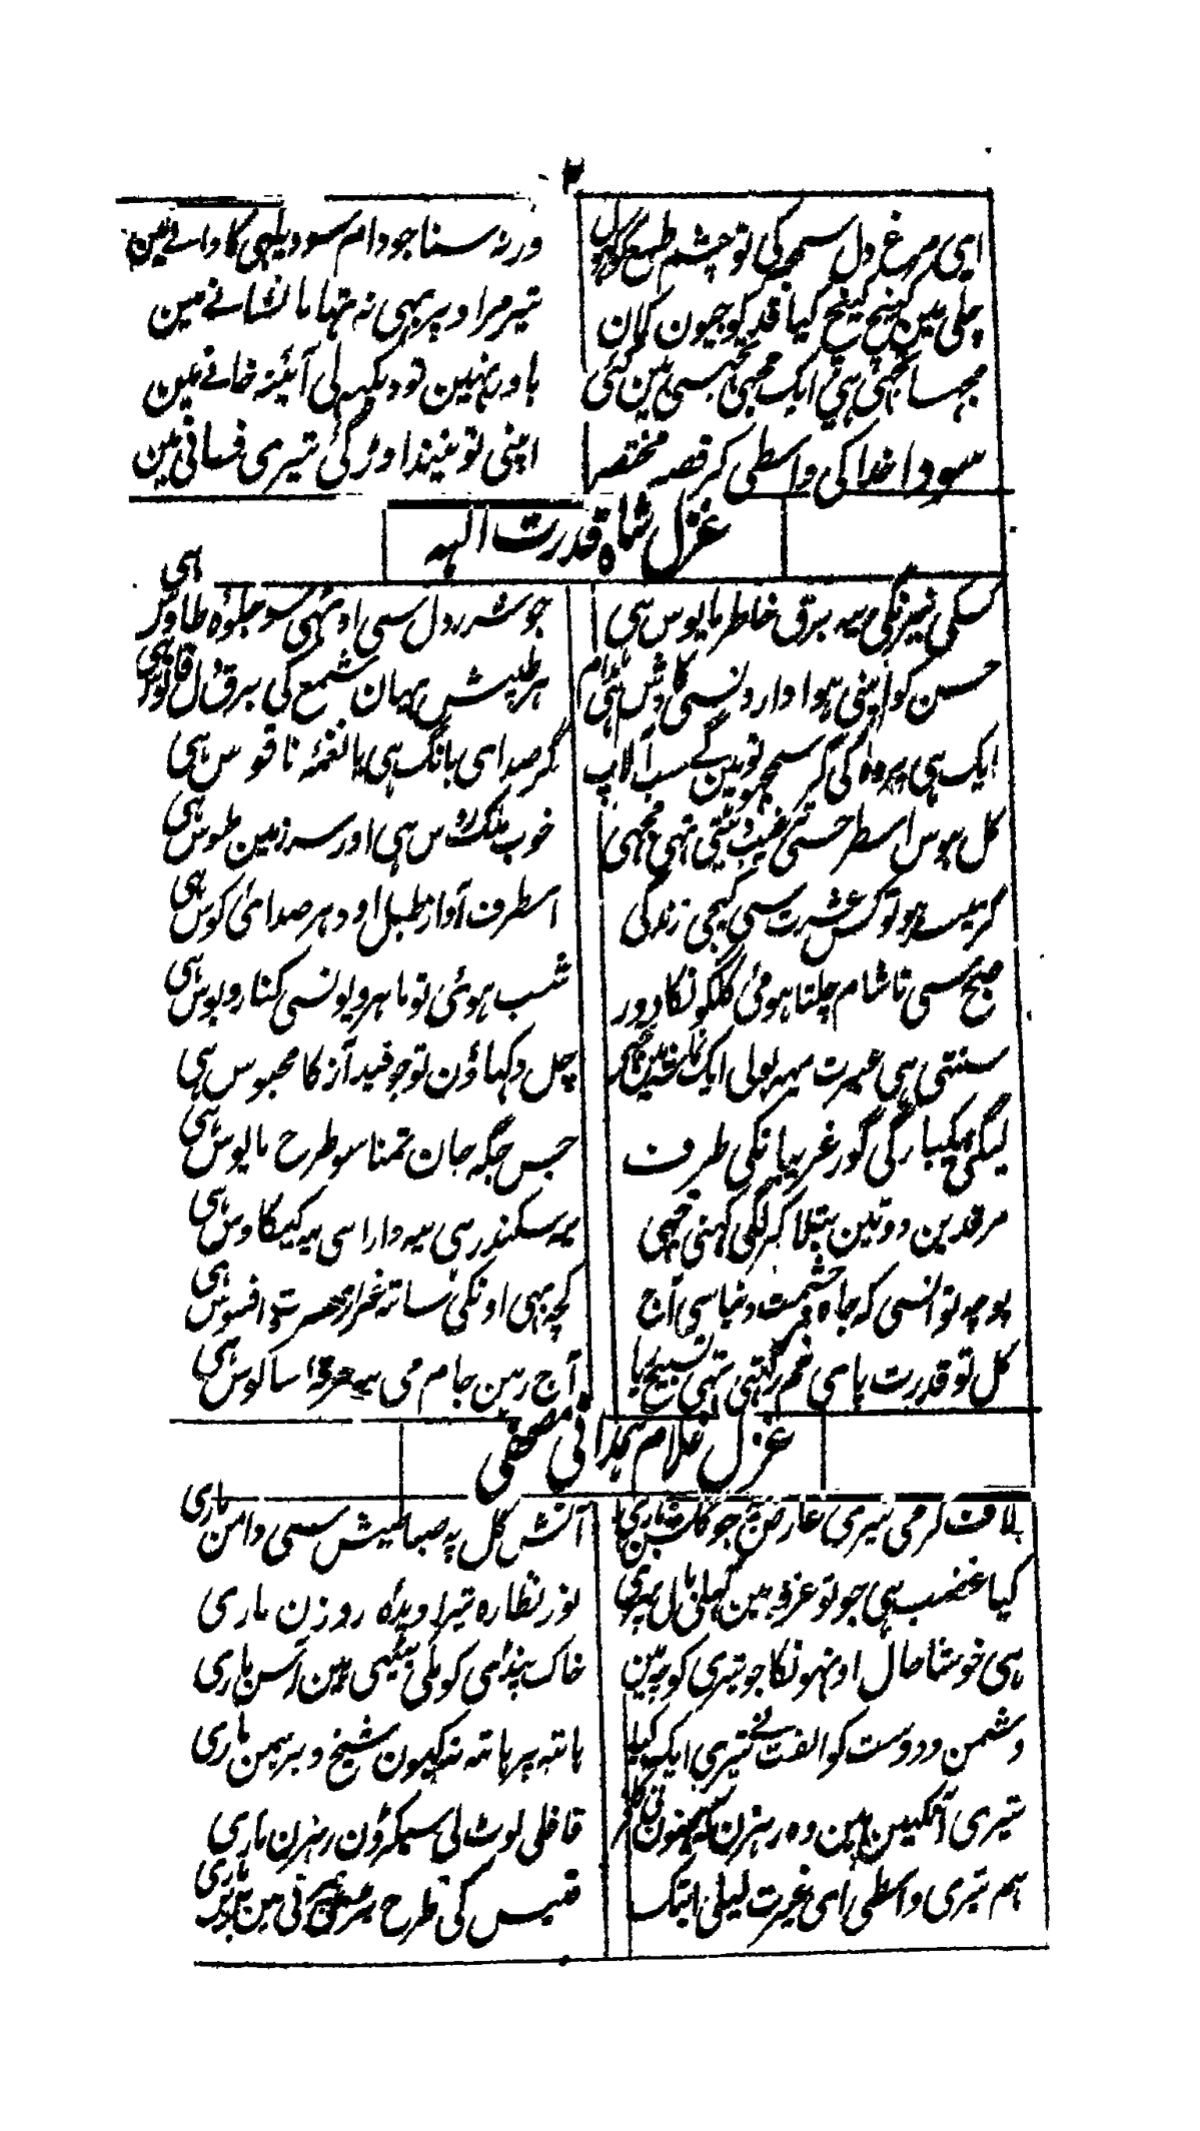 ۲
ایی مرغ دل سمجہ کی تو چشم طمع کو کہول ورنہ سنا جو دام سو دیکہی کا دانے مین
چلی مین کہینچ کہینچ کیا قد کو جیون کمان تیر مراد پر بہی نہ تہایا نشانے مین
مجہسا تجہی ہی ایک مجہی تجہسی ہین کئی باور نہین تو دیکہہ لی آئینہ خانے مین
سودا خدا کی واسطی کر قصہ مختصر اپنی تو نیند اوڑ گئی تیری فسانی مین
غزل شاہ قدرت اللہ
کسکی نیرنگی یہہ برق خاطر مایوس ہی جو شرر دل سی اوٹہی سو جلوہ طاوس ہی
حسن کو اپنی ہوا دارونسی کاوش ہی مدام ہر طپش یہان شمع کی برق دل فانوس ہی
ایک ہی پردہ کی گر سمجہو تو ہین گے سب آلاپ گر صدا ہی بانگ ہی یا نغمہ ناقوس ہی
کل ہوس اسطرحسی ترغیب دیتی تہی مجہی خوب ملک روس ہی اور سرزمین طوس ہی
گر میسر ہو تو کس عشرت سی کیجی زندگی اسطرف آواز طبل اودہر صدائی کوس ہی
صبح سی تا شام چلتا ہو می گلگونکا دور شب ہوئی تو ماہرویونسی کنار و بوس ہی
سنتی ہی عبرت یہہ بولی ایک تماشا مین تجہی چل دکہاؤن تو جو قید آز کا محبوس ہی
لیگئی یکبارگی گور غریبانکی طرف جس جگہ جان تمنا سو طرح مایوس ہی
مرقدین دو تین بتلا کر لگی کہنی مجہی یہ سکندر ہی یہ دارا ہی یہ کیکاوس ہی
پوچہو تو انسی کہ جاہ و حشمت دنیا سی آج کچہ بہی اونکی ساتہ غیر از حسرت و افسوس ہی
کل تو قدرت پای خم رکہتی تہی تسبیح یا آج رہن جام می یہ خرقہ سالوس ہی
غزل غلام ہمدانی مصحفی
لاف گرمی تیری عارض پہ جو گلشن ماری آتش گل پہ صبا طیش سی دامن ماری
کیا غضب ہی جو تو غرفہ مین کہلی بال پہری نور نظارہ تیرا دیدہ روزن ماری
ہی خوشا حال اونہونکا جو تیری کوچہ مین خاک پنڈمی کو ملی بیٹہی ہین آسن ماری
دشمن و دوست کو الفت نے تیری ایک کیا ہاتہ پر ہاتہ نہ کیون شیخ و برہمن ماری
تیری آنکہین ہین وہ رہزن کہ جنہون نی کافر قافلی لوٹ لی سیکڑون رہزن ماری
ہم تیری واسطی ای غیرت لیلی ابتک قیس کی طرح پہرتی ہین بن ماری